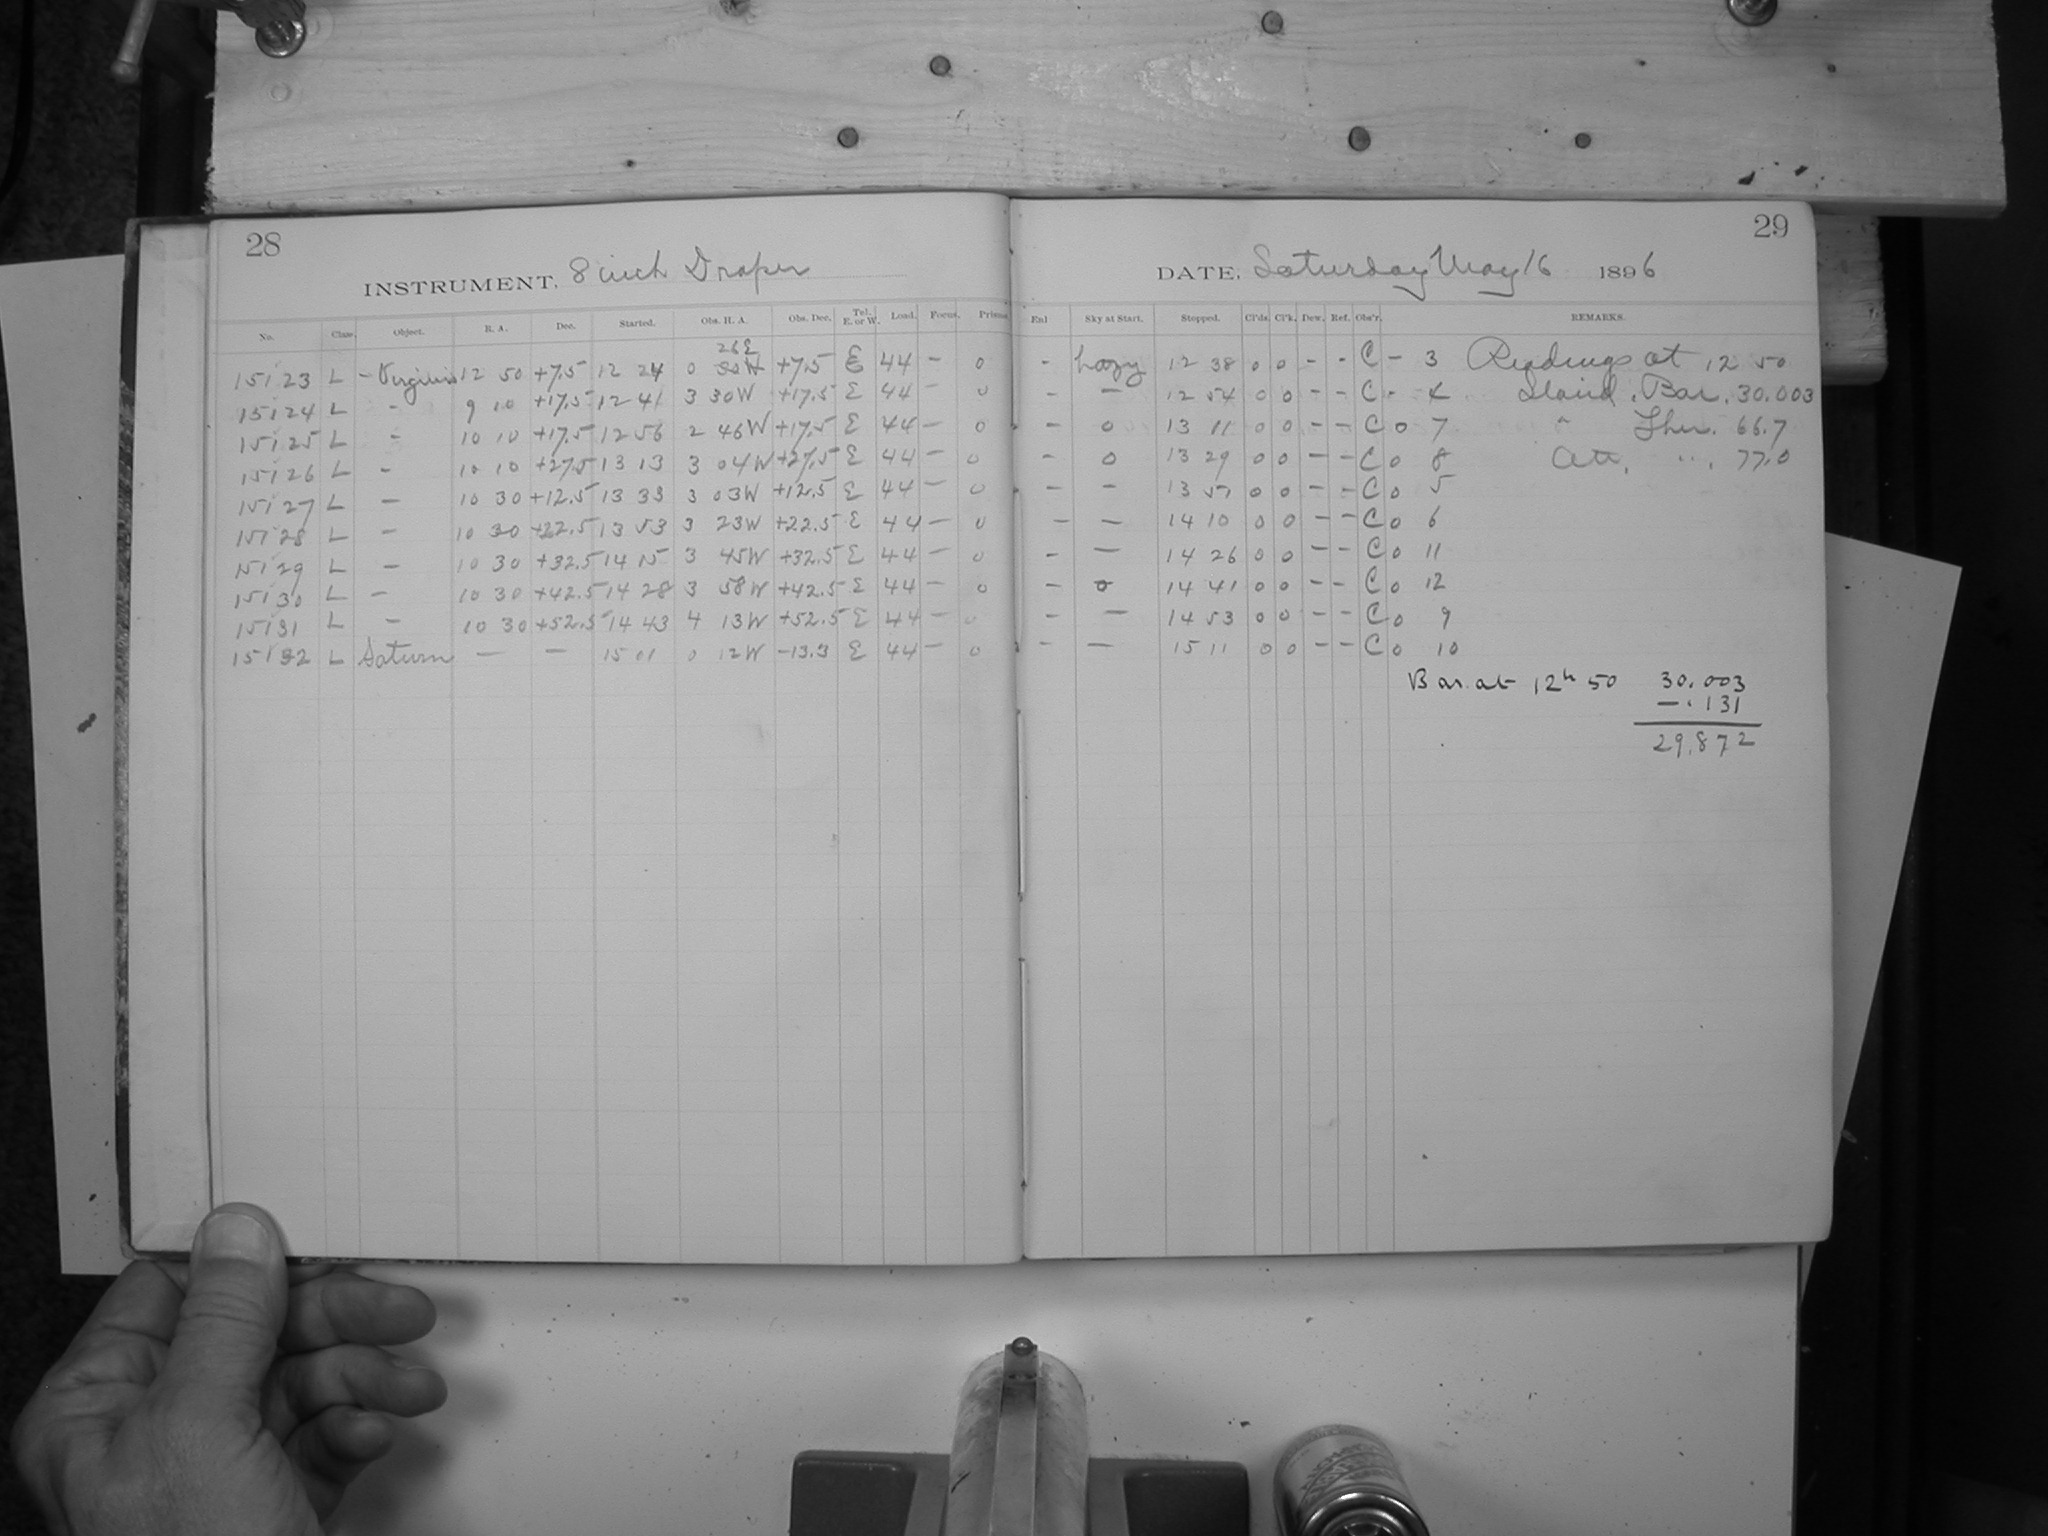 28
INSTRUMENT. 8 inch Draper
No. Class. Object. R. A. Dec. Started. Obs. H. A. Obs. Dec. Tel. E. or W. Load. Focus. Prisms
26E
15123 L – Virginis 12 50 +7.5 12 24 0 +7.5 E 44 – 0
15124 L – 9 10 +17.5 12 41 3 30W +17.5 E 44 – 0
15125 L – 10 10 +17.5 12 56 2 46W +17.5 E 44 – 0
15126 L – 10 10 +27.5 13 13 3 04W +27.5 E 44 – 0
15127 L – 10 30 +12.5 13 33 3 03W +12.5 E 44 – 0
15128 L – 10 30 +22.5 13 53 3 23W +22.5 E 44 – 0
15129 L – 10 30 +32.5 14 15 3 45W +32.5 E 44 – 0
15130 L – 10 30 +42.5 14 28 3 58W +42.5 E 44 – 0
15131 L – 10 30 +52.5 14 43 4 13W +52.5 E 44 – 0
15132 L Saturn – – 15 01 0 12W –13.3 E 44 – 0
29
DATE. Saturday May 16 1896
Enl Sky at Start. Stopped. Cl'ds. Cl'k. Dew. Ref. Obs'r. REMARKS.
– hazy 12 38 0 0 – – C – 3 Readings at 12 50
– – 12 54 0 0 – – C – 4 Stand. Bar. 30.003
– 0 13 11 0 0 – – C 0 7 " Ther. 66.7
– 0 13 29 0 0 – – C 0 8 Att. " 77.0
– – 13 51 0 0 – – C 0 5
– – 14 10 0 0 – – C 0 6
– – 14 26 0 0 – – C 0 11
– 0 14 41 0 0 – – C 0 12
– – 14 53 0 0 – – C 0 9
– – 15 11 0 0 – – C 0 10
Bar. at 12h 50 30.003
– .131
29.872